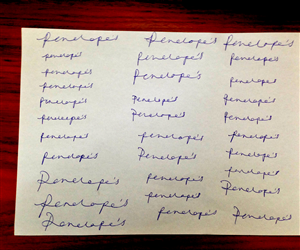 Penelope's Penelope's Penelope's
penelope's Penelope's Penelope's
penelope's Penelope's penelope's
penelope's Penelope's Penelope's
Penelope's Penelope's Penelope's
penelope's penelope's penelope's
penelope's Penelope's penelope's
penelope's penelope's penelope's
Penelope's penelope's Penelope's
Penelope's penelope's Penelope's
Penelope's